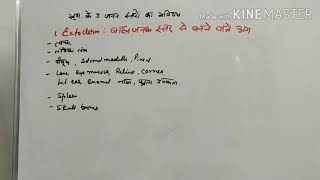 भ्रूण के 3 जनन स्तरों का भविष्य
Made with KINEMASTER
1. Ectoderm : बाह्य जनन स्तर से बनने वाले अंग
- त्वचा
- तंत्रिका तंत्र
- पीयूष, Adrenal medulla, Pineal
- Lens, eye mucosa, Retina, cornea
ear, Enamel
- Spleen
- Skull bones